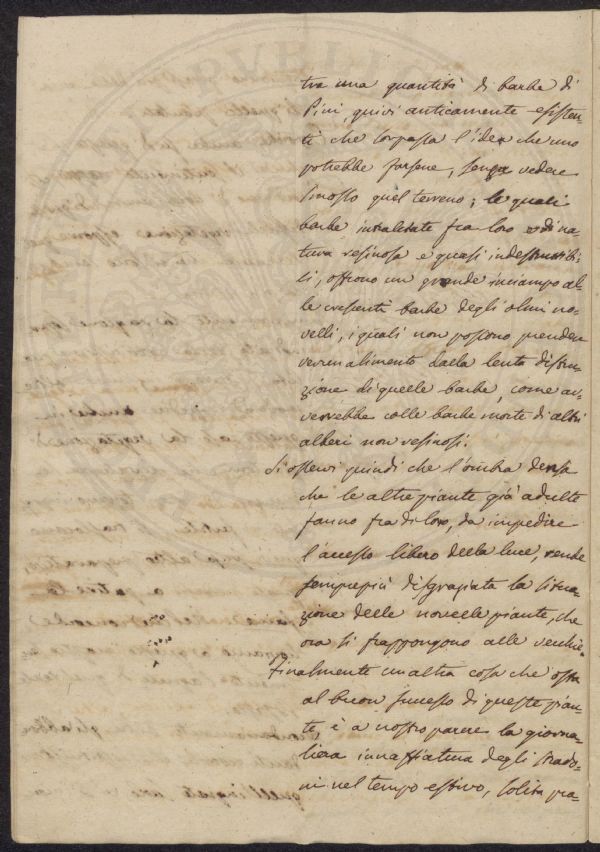 tra una quantità di barbe di
Pini, quivi anticamente esisten-
ti che sorpassa l'idea che uno
potrebbe farsene, senza vedere
smosso quel terreno; le quali
barbe intralciate fra loro e di na-
tura resinosa e quasi indestruttibi-
li, offrono un grande inciampo al-
le crescenti barbe degli olmi no-
velli, i quali non possono prendere
verun alimento dalla lenta distru-
zione di quelle barbe, come av-
verrebbe colle barbe morte di altri
alberi non resinosi.
Si osservi quindi che l'ombra densa
che le altre piante già adulte
fanno fra di loro, da impedire
l'accesso libero della luce, rende
sempre più disgraziata la situa-
zione delle novelle piante, che
ora si frappongono alle vecchie.
Finalmente un altra cosa che osta
al buon successo di queste pian-
te, è a nostro parere la giorna-
liera innaffiatura degli strado-
ni nel tempo estivo, solita pra-